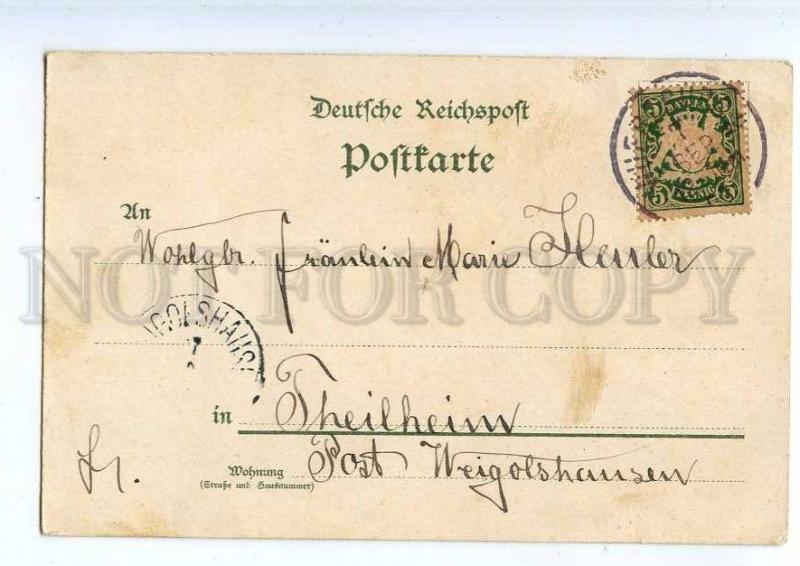 Deutsche Reichspost
Postkarte
5 BAYERN 5
5 PFENNIG 5
An
Wohlgbr. Fräulein Marie
NOT FOR COPY
IGOLSHAUS
7
in Theilheim
Post Weigolshausen
Wohnung
(Straße und Hausnummer)